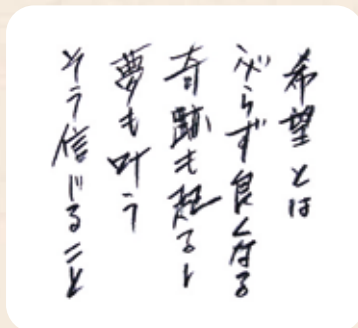 希望とは
必らず良くなる
奇跡も起るし
夢も叶う
そう信じること